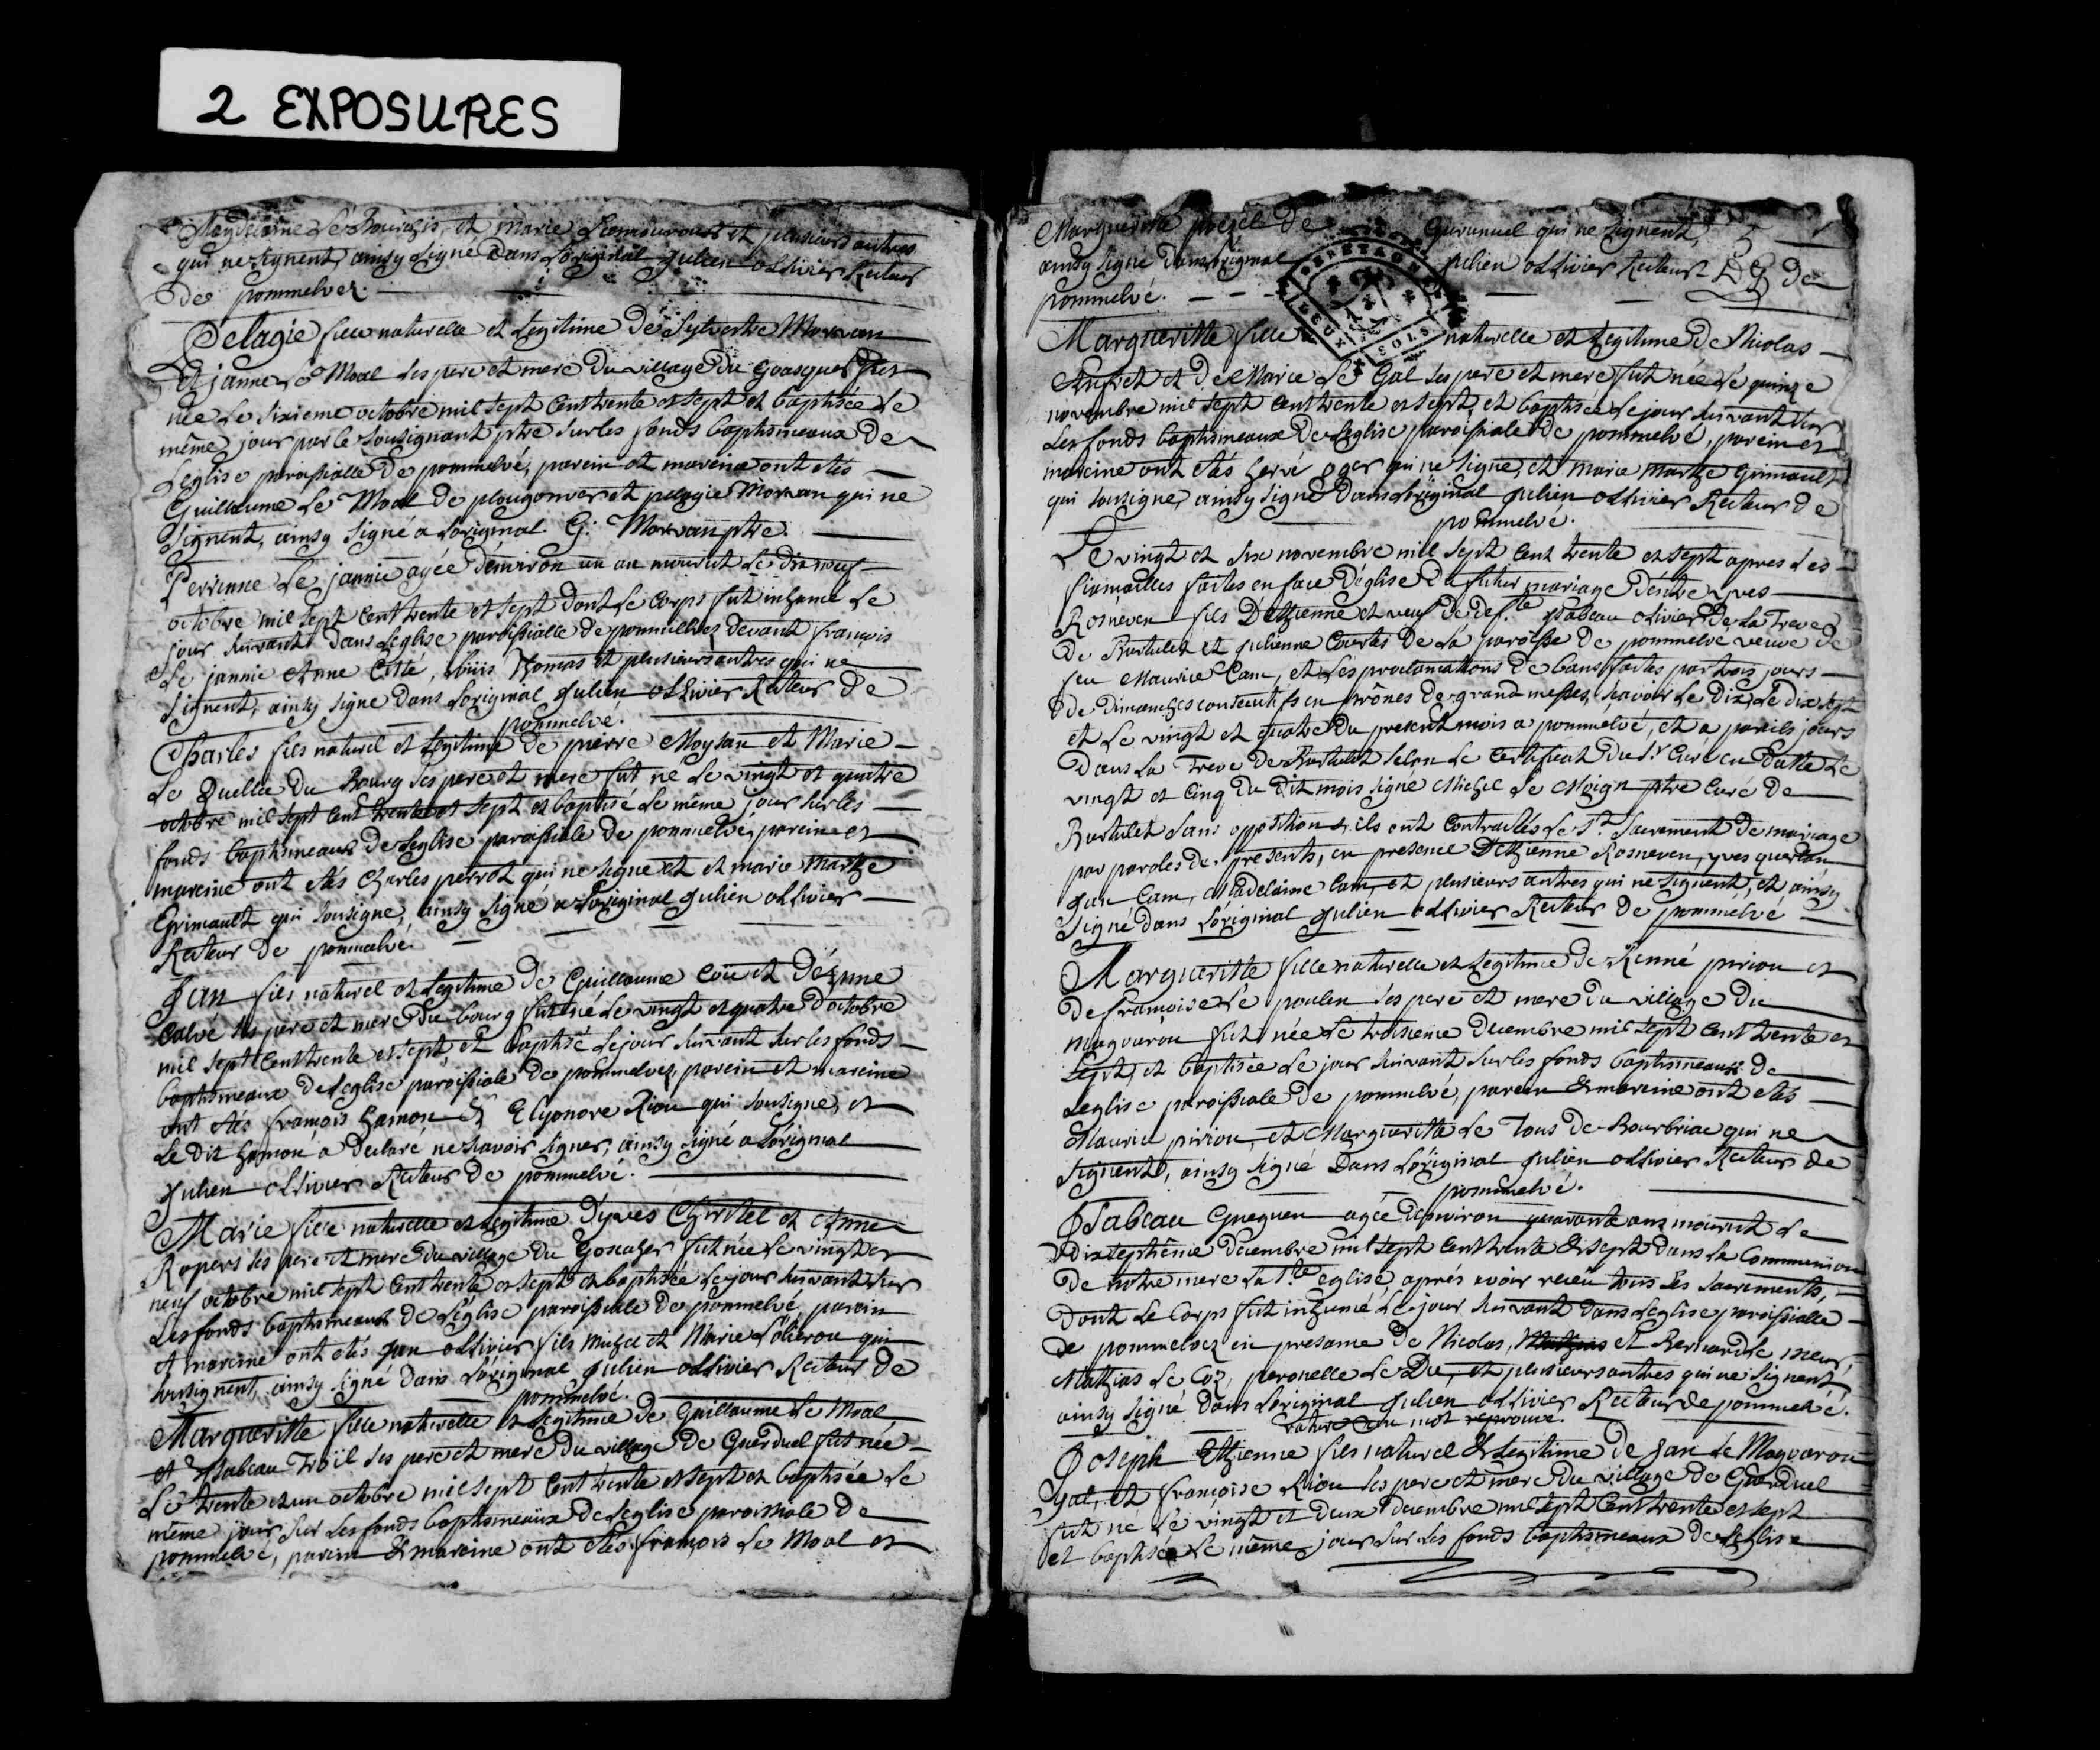 2 EXPOSURES
Magdelaine Le Bourhis, et Marie et plusieurs autres
qui ne signent, ainsy signé Dans L'original Julien ollivier Recteur
de pommelvez.
Pelagie fille naturelle et Legitime De Sylvestre Morvan
Et janne Le Moal ses pere et mere Du village Du Goasquer fut
née Le sixieme octobre mil sept cent trente et sept et baptisée Le
même jour par le soussignant ptre sur les fonds baptismeaux De
Leglise paroissialle De pommelvé, parein et mareine ont etés
Guillaume Le Moal De plougonver et pelagie Morvan qui ne
signent, ainsy signé a L'original G: Morvan ptre.
Perrinne Le jannic agée D'environ un an mourut Le dix neuf
octobre mil sept cent trente et sept dont Le corps fut inhumé Le
jour suivant dans Leglise paroissialle De pommelvez devant françois
Le jannic Anne Citte, Louis Thomas et plusieurs autres qui ne
signent, ainsy signe dans L'original Julien ollivier Recteur De
pommelvé.
Charles fils naturel et Legitime De pierre Moysan et Marie
Le Quellec Du Bourg ses pere et mere fut né Le vingt et quatre
octobre mil sept cent trente et sept et baptisé Le même jour sur les
fonds baptismeaux De Leglise paroissiale De pommelvé, parein et
mareine ont etés Charles perrot qui ne signe et et marie Marthe
Grimault qui sousigne, ainsy signé a L'original Julien ollivier
Recteur De pommelvé.
Jan fils naturel et Legitime De Guillaume et D'Anne
Calvé ses pere et mere Du bourg fut né Le vingt et quatre D'octobre
mil sept cent trente et sept, et baptisé Le jour suivant sur les fonds
baptismeaux De Leglise paroissiale De pommelvez, parein et mareine
ont etés françois hamon & Elyonore Riou qui sousigne, et
Le Dit hamon a Declaré ne sçavoir signer, ainsy signé a L'original
Julien ollivier Recteur De pommelvé.
Marie fille naturelle et Legitime D'yves Christel et Anne
Ropers ses pere et mere Du village Du fut née Le vingt et
neuf octobre mil sept cent trente et sept et baptisée Le jour suivant sur
Les fonds baptismeaux De L'église paroissiale De pommelvé, parein
et mareine ont etés Jan ollivier fils Michel et Marie qui
sousignent, ainsy signé dans L'original Julien ollivier Recteur De
pommelvé.
Margueritte fille naturelle et Legitime De Guillaume Le Moal
et ysabeau ses pere et mere Du village De Guerduel fut née
Le trente et un octobre mil sept cent trente et sept et baptisée Le
même jour sur Les fonds baptismeaux De Leglise paroissiale De
pommelvé, parein & mareine ont etés françois Le Moal et
Margueritte De qui ne signent,
ainsy signé dans L'original Julien ollivier Recteur De
pommelvé.
BRETAGNE
DEUX SOLS
Margueritte fille naturelle et Legitime De Nicolas
Aufret et De Marie Le Gal ses pere et mere fut née Le quinze
novembre mil sept cent trente et sept, et baptisée Le jour suivant sur
Les fonds baptismeaux De Leglise paroissiale De pommelvé, parein et
mareine ont etés hervé oger qui ne signe, et marie marthe Grimault
qui sousigne, ainsy signé Dans L'original Julien ollivier Recteur De
pommelvé.
Le vingt et six novembre mil sept cent trente et sept apres Les
fiansailles faites en face D'église Du futur mariage D'entre yves
Rosneven fils D'Ethienne et veuf De Deff.te ysabeau olivier De La Treve
De Burtulet et Julienne Courtes De La paroisse De pommelvé veuve De
feu Maurice Cam, et Les proclamations De bans faites par trois jours
De Dimanches consecutifs en prônes De grand messes, sçavoir Le Dix, Le Dix sept
et Le vingt et quatre Du present mois a pommelvé, et a pareils jours
Dans La Treve De Burtulet selon Le certificat Du s.r Curé en Datte Le
vingt et Cinq Du Dit mois signé Michel Le Moign ptre Curé De
Burtulet sans opposition, ils ont contractés Le s.t sacrement De mariage
par paroles De presents, en presence D'Ethienne Rosneven, yves querlan
Jan Cam, Madelaine Cam, et plusieurs autres qui ne signent, et ainsy
signé dans L'original Julien ollivier Recteur De pommelvé
Margueritte fille naturelle et Legitime De Renné piriou et
De françoise Le poulen ses pere et mere Du village Du
magoarou fut née Le troisieme Decembre mil sept cent trente et
sept, et baptisée Le jour suivant sur les fonds baptismeaux De
Leglise paroissiale De pommelvé, parein & mareine ont etés
Maurice piriou, et Margueritte Le Tous De Bourbriac qui ne
signent, ainsy signé Dans L'original Julien ollivier Recteur De
pommelvé.
Isabeau Gueguen agée D'environ quarante ans mourut Le
Dixseptième Decembre mil sept cent trente & sept dans La Communion
De notre mere La s.te eglise aprés avoir receu tous Les sacrements,
Dont Le Corps fut inhumé Le jour suivant dans Leglise paroissialle
De pommelvez en presance De Nicolas, Mathias et Bernard Le meur,
Mathias Le Coz, peronelle Le Du, et plusieurs autres qui ne signent
ainsy signé Dans L'original Julien ollivier Recteur De pommelvé.
rature d'un mot reprouvé.
Joseph Ethienne fils naturel & Legitime De Jan Le Magoarou
yat, et françoise Riou ses pere et mere Du village De Guerduel
fut né Le vingt et Deux Decembre mil sept Cent trente et sept
et baptisé Le même jour sur Les fonds baptismeaux De Leglise